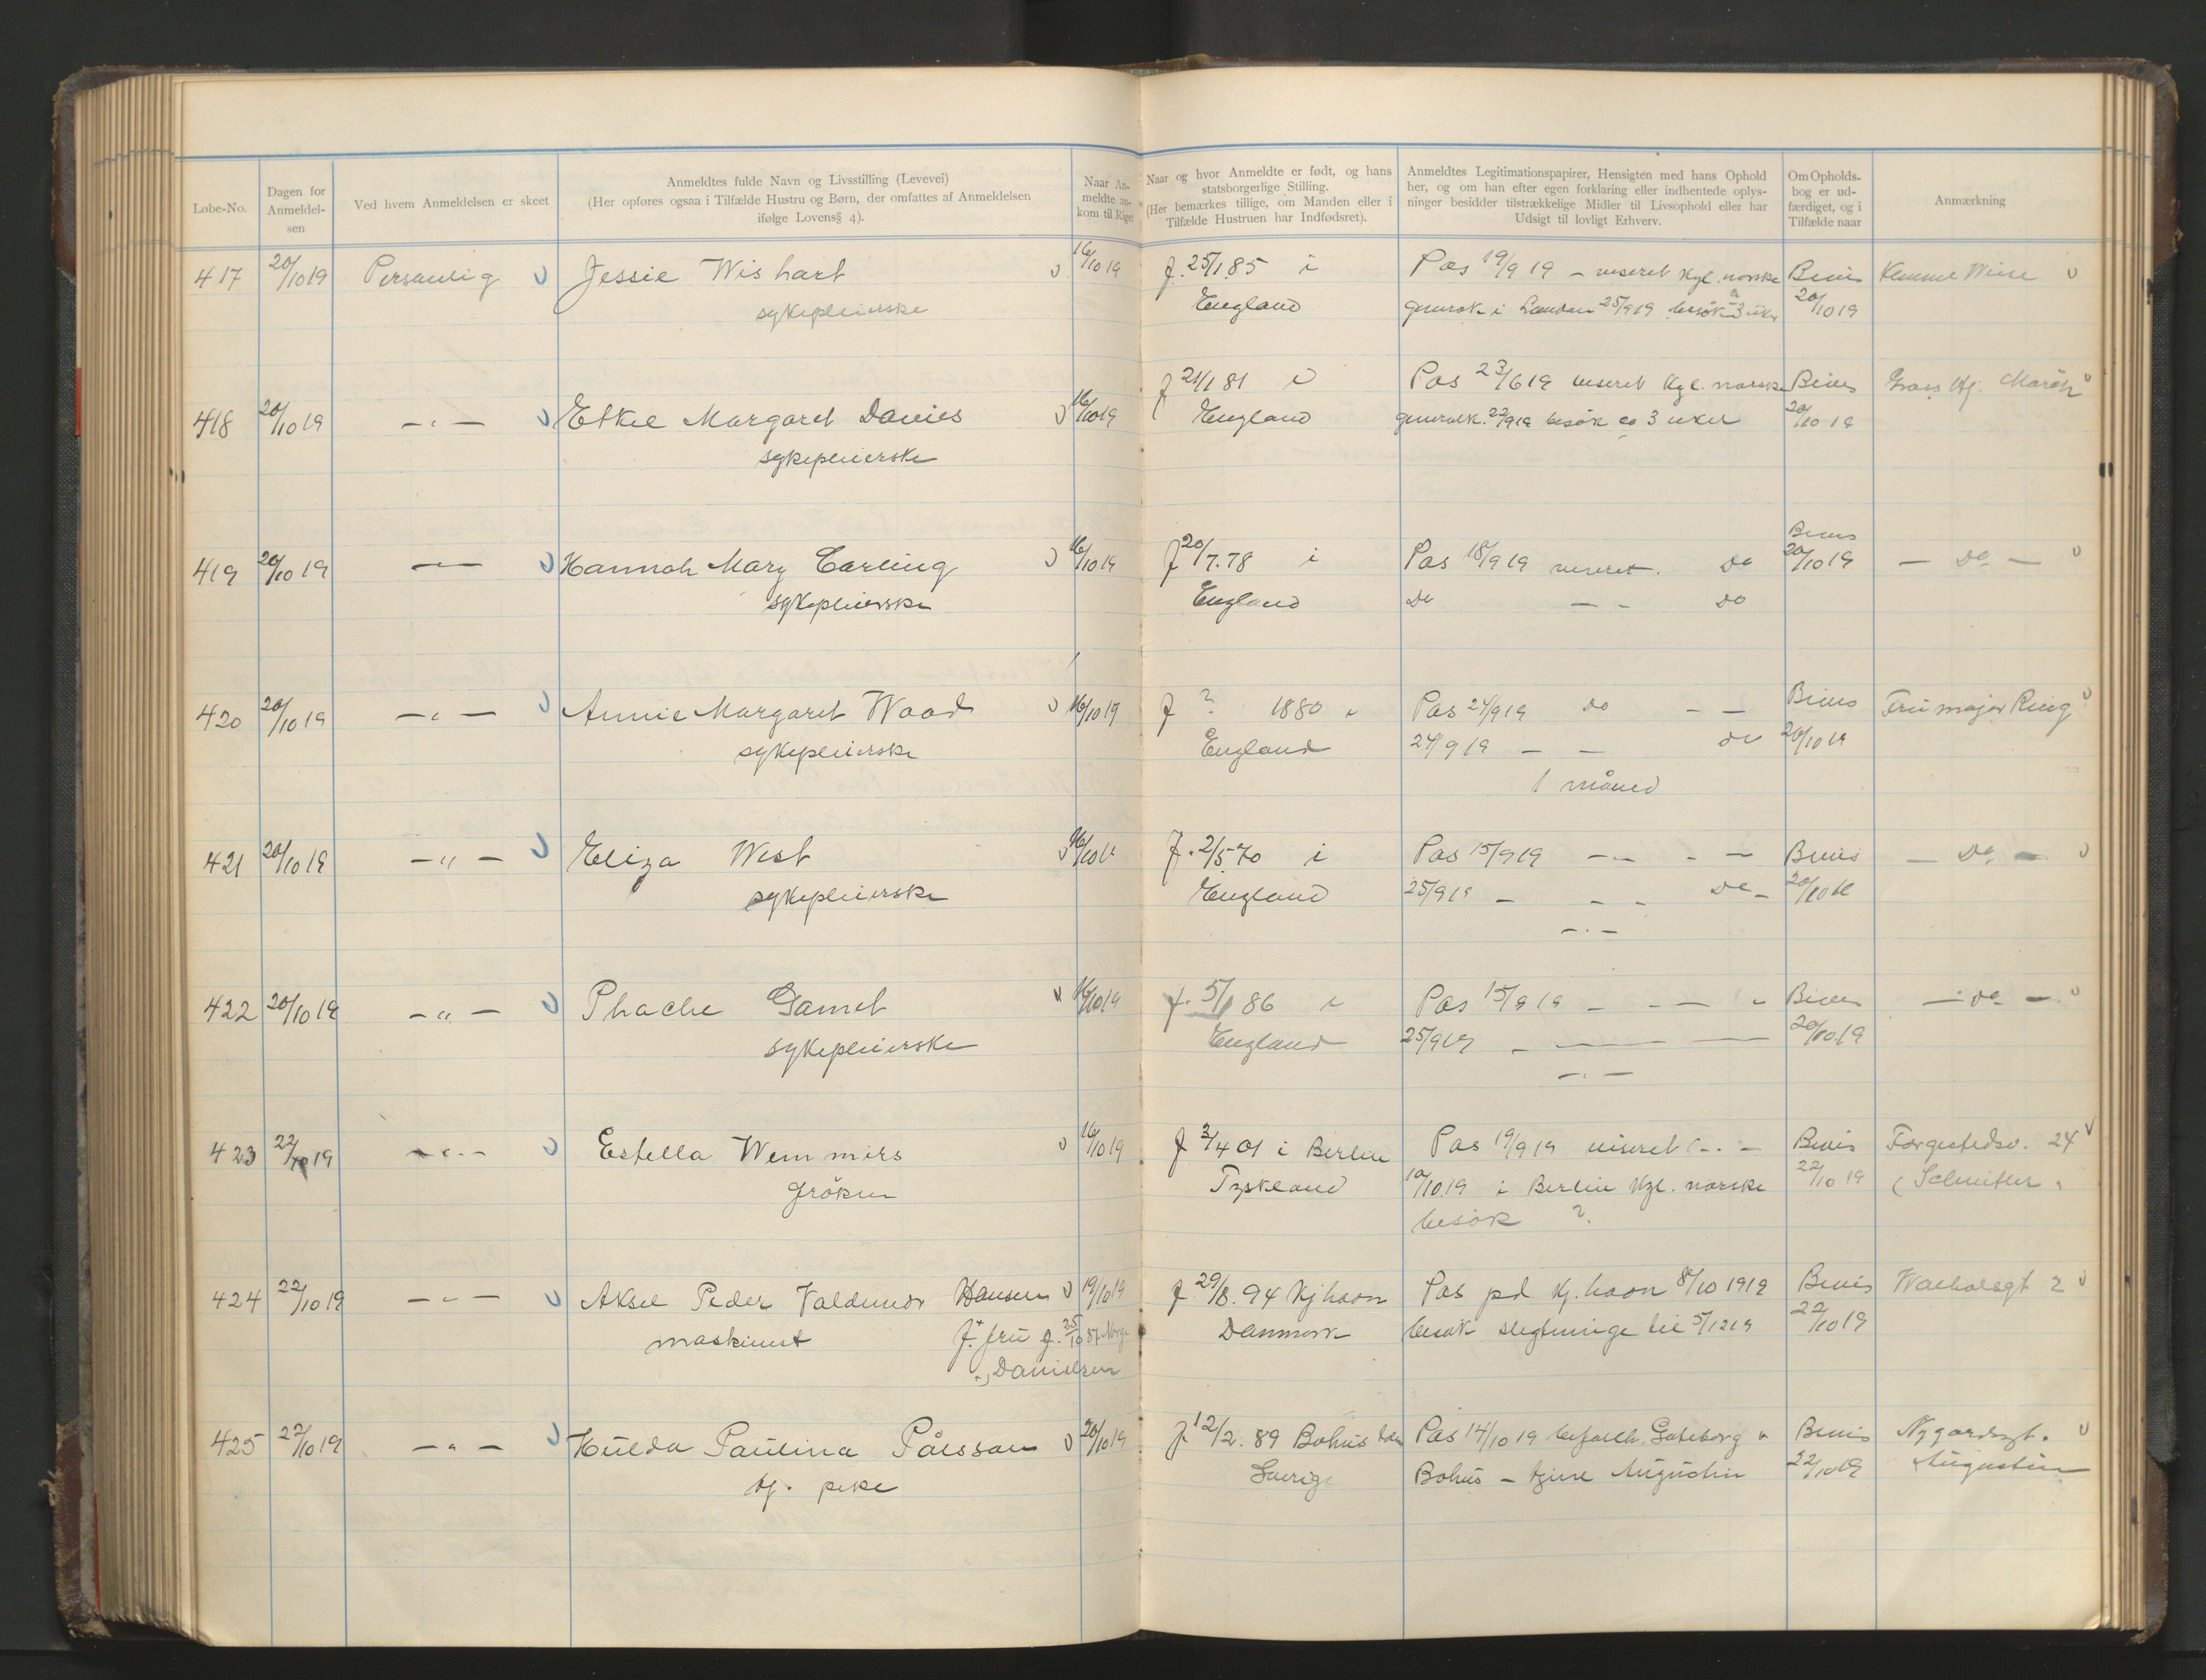 Løbe-No.
Dagen for Anmeldel-sen
Ved hvem Anmeldelsen er skeet
Anmeldtes fulde Navn og Livsstilling (Levevei)
(Her opføres ogsaa i Tilfælde Hustru og Børn, der omfattes af Anmeldelsen
ifølge Lovens § 4).
Naar An-
meldte an-
kom til Riget
Naar og hvor Anmeldte er født, og hans
statsborgerlige Stilling.
(Her bemærkes tillige, om Manden eller i
Tilfælde Hustruen har Indfødsret).
Anmeldtes Legitimationspapirer, Hensigten med hans Ophold
her, og om han efter egen forklaring eller indhentede oplys-
ninger besidder tilstrækkelige Midler til Livsophold eller har
Udsigt til lovligt Erhverv.
Om Opholds-
bog er ud-
færdiget, og i
Tilfælde naar
Anmærkning
417 20/10 19 Personlig Jessie Wishart 16/10 19 f. 25/1 85 i Pas 19/9 19 – viseret kgl. norske Bevis
sykepleierske England generalk. i London 25/9 19 besøk 3 uker 20/10 19
418 20/10 19 – " – Ethel Margaret Davies 16/10 19 f 21/1 81 i Pas 23/6 19 viseret kgl. norske Bevis
sykepleierske England generalk. 22/9 19 besøk ca 3 uker 20/10 19
419 20/10 19 — Hannah Mary Carling 16/10 19 f 20/7.78 i Pas 18/9 19 viseret. Do Bevis 20/10 19 — Do —
sykepleierske England Do — – Do
420 20/10 19 – " – Annie Margaret Wood 16/10 19 f ? 1880 i Pas 24/9 19 Do – — Bevis Fru major Ring
sykepleierske England 24/9 19 – — do 20/10 19
1 måned
421 20/10 19 – " – Eliza West 16/10 19 f. 2/5 70 i Pas 15/9 19 — – — Bevis — Do. —
sykepleierske England 25/9 19 – – – Do – 20/10 19
– " –
422 20/10 19 – " – Gamet 16/10 19 f. 5/1 86 i Pas 15/9 19 – – — Bevis — do —
sykepleierske England 25/9 19 – — — 20/10.19
– " –
423 22/10 19 – " – Estella Wemmers 16/10 19 f 3/4 01 i Berlin Pas 19/9 19 viseret Bevis 24
frøken Tyskland 10/10.19 i Berlin kgl. norske 22/10 19
besøk ?
424 22/10 19 – " – Aksel Peder Valdemar Hansen 19/10 19 f. 29/8. 94 Kjhavn Pas pd Kj.havn 8/10 1919 Bevis 2
maskinist f. fru f. 25/10 87 Norge Danmark besøk slegtninge til 5/12 19 22/10 19
Danielsen
425 22/10 19 – " – Hulda Paulina Pålsson 20/10 19 f. 12/2. 89 Bohus Pas 14/10 19 Gøteborg Bevis Nygardsgt.
tj. pike Sverige Bohus – tjene Augustin 22/10 19 Augustin